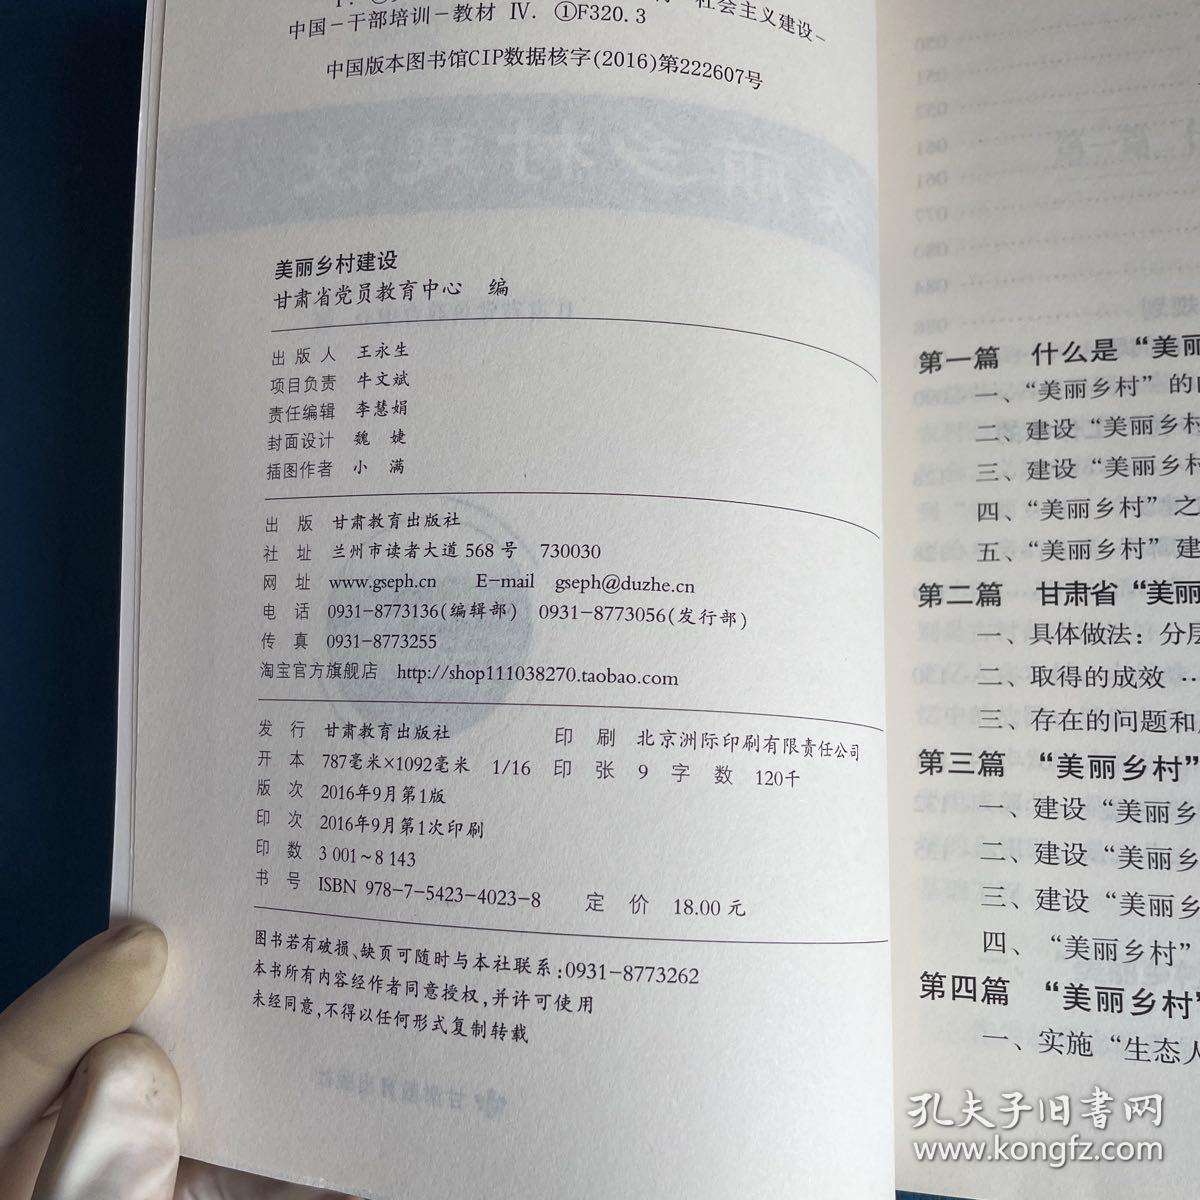 社会主义建设-
中国-干部培训-教材 Ⅳ. ①F320.3
中国版本图书馆CIP数据核字(2016)第222607号
美丽乡村建设
甘肃省党员教育中心 编
出 版 人 王永生
项目负责 牛文斌
责任编辑 李慧娟
封面设计 魏 婕
插图作者 小 满
出 版 甘肃教育出版社
社 址 兰州市读者大道 568 号 730030
网 址 www.gseph.cn E-mail gseph@duzhe.cn
电 话 0931-8773136(编辑部) 0931-8773056(发行部)
传 真 0931-8773255
淘宝官方旗舰店 http://shop111038270.taobao.com
发 行 甘肃教育出版社 印 刷 北京洲际印刷有限责任公司
开 本 787毫米×1092毫米 1/16 印 张 9 字 数 120千
版 次 2016年9月第1版
印 次 2016年9月第1次印刷
印 数 3 001~8 143
书 号 ISBN 978-7-5423-4023-8 定 价 18.00 元
图书若有破损、缺页可随时与本社联系:0931-8773262
本书所有内容经作者同意授权,并许可使用
未经同意,不得以任何形式复制转载
第一篇 什么是“美丽
一、“美丽乡村”的
二、建设“美丽乡村
三、建设“美丽乡村
四、“美丽乡村”之
五、“美丽乡村”建
第二篇 甘肃省“美丽
一、具体做法：分层
二、取得的成效 …
三、存在的问题和
第三篇 “美丽乡村”
一、建设“美丽乡
二、建设“美丽乡
三、建设“美丽乡
四、“美丽乡村”
第四篇 “美丽乡村”
一、实施“生态人
孔夫子旧书网
www.kongfz.com